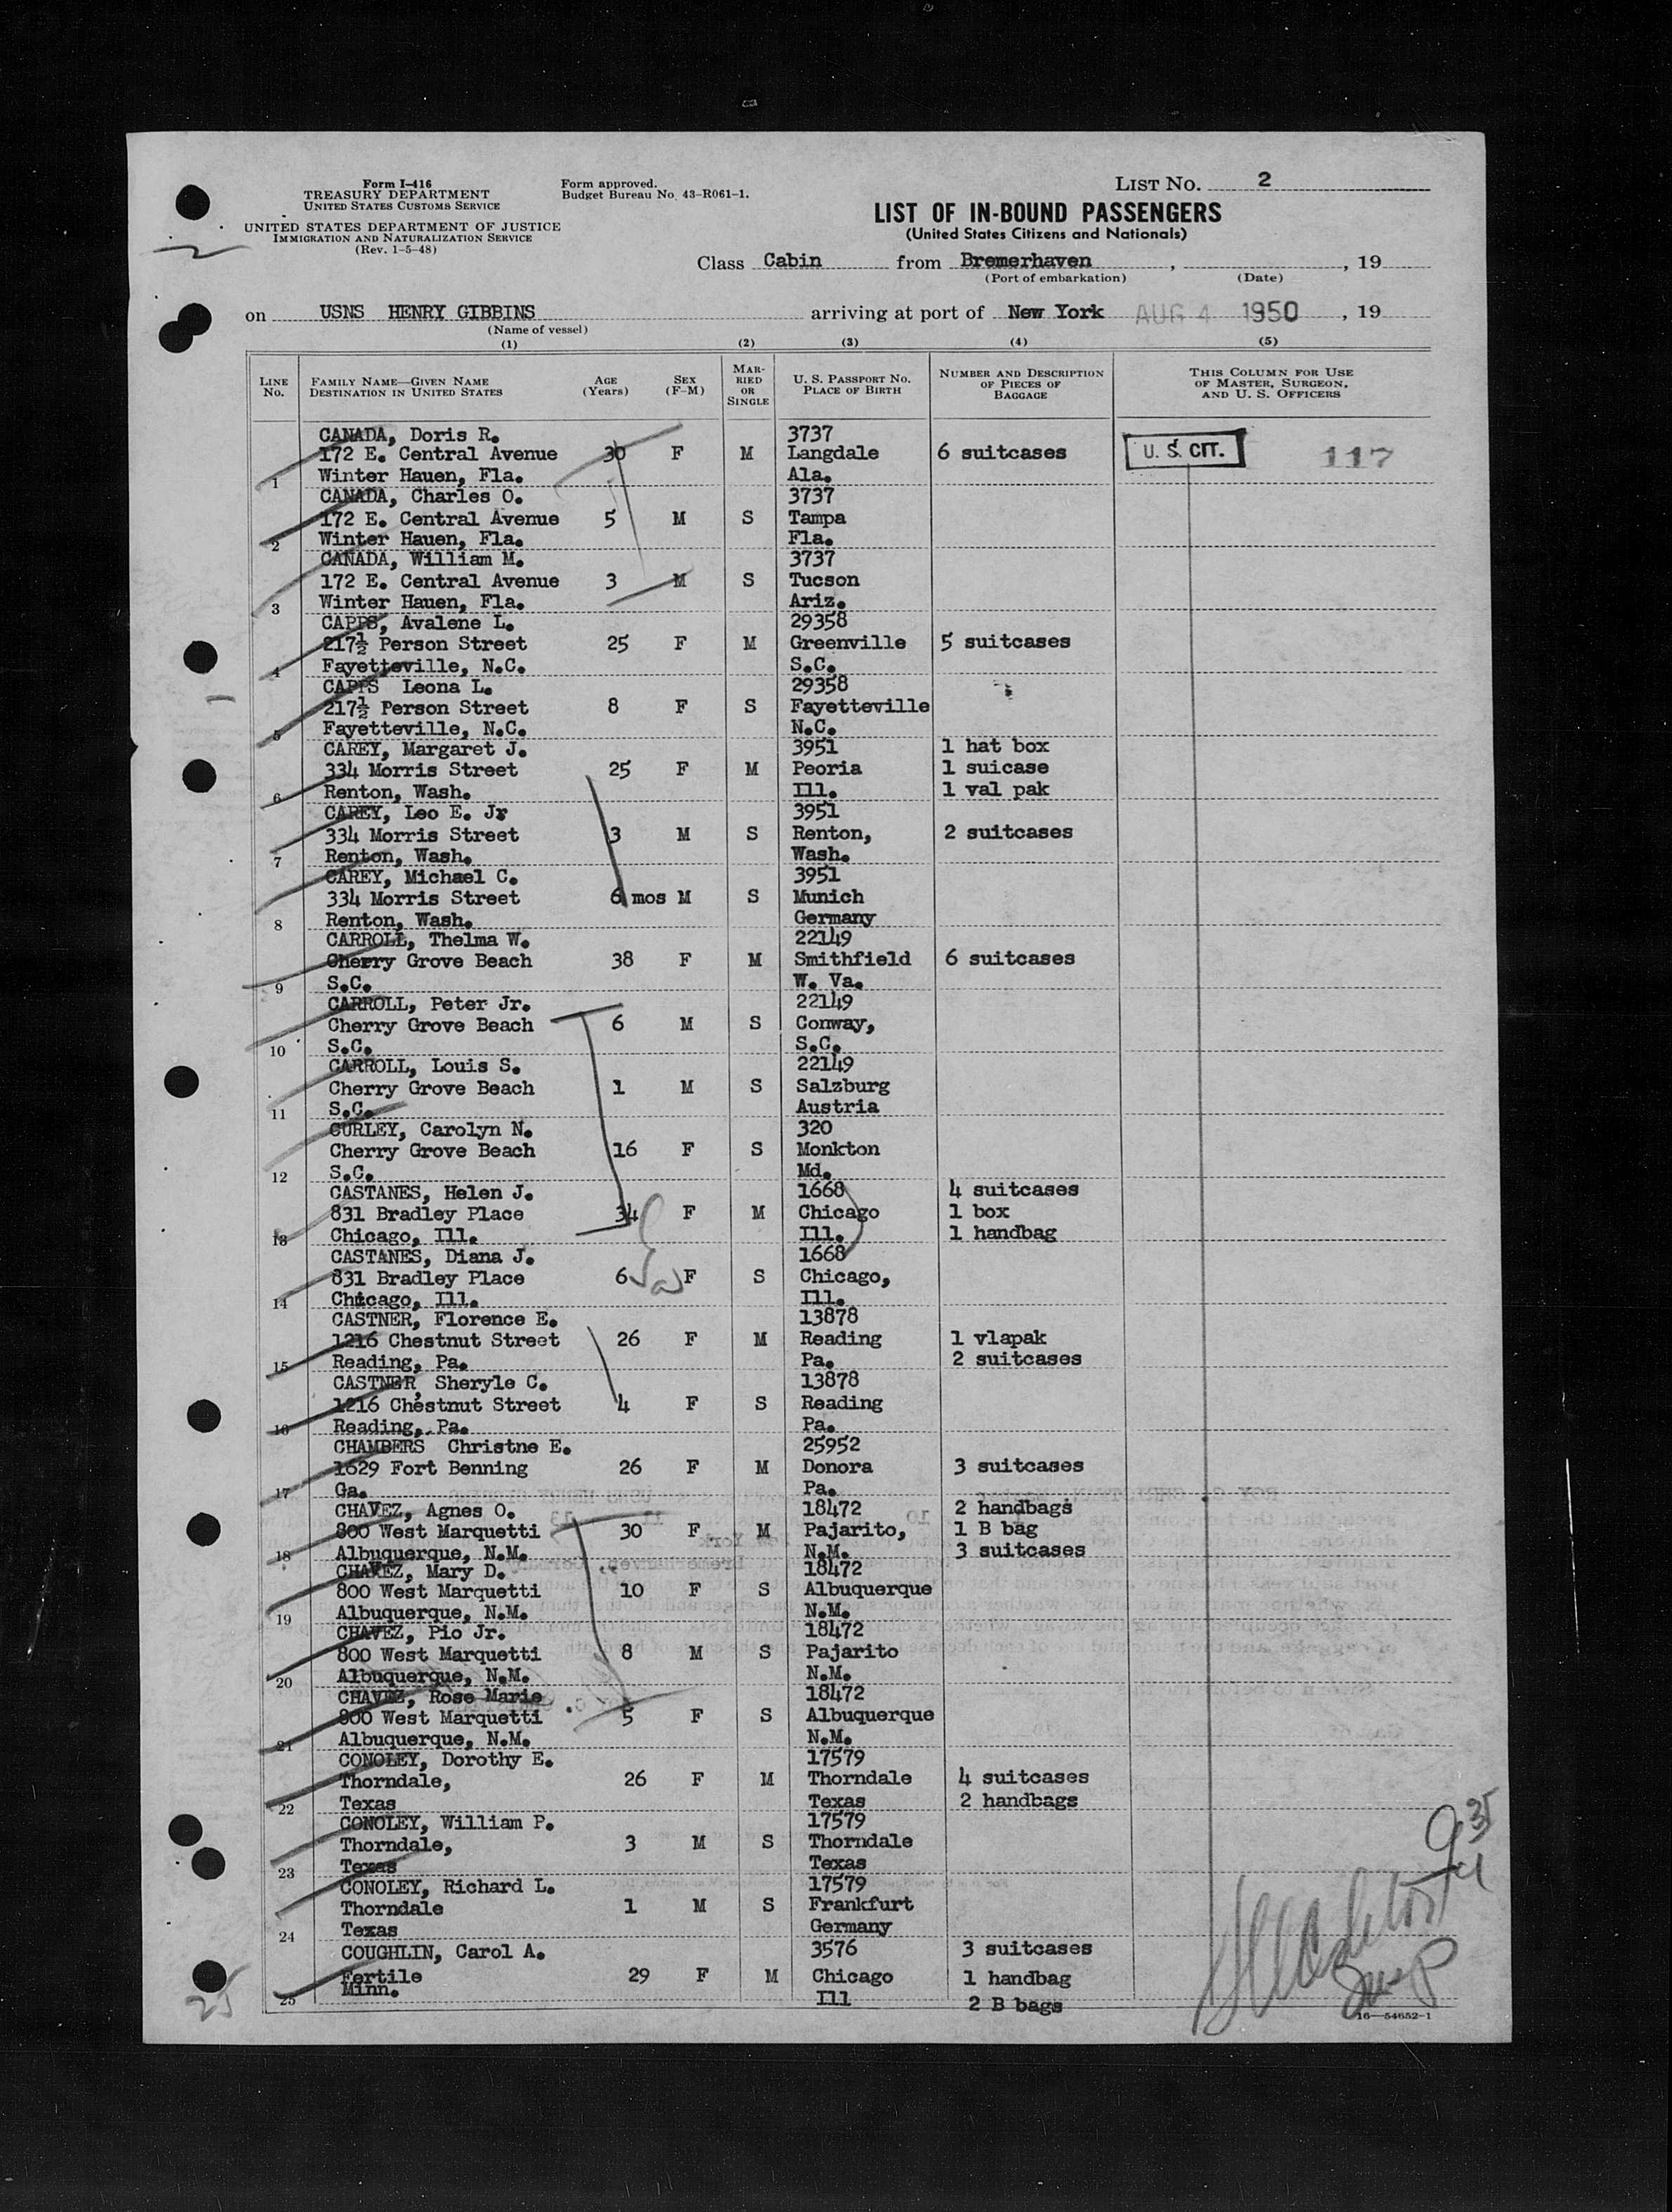 Form I-416
TREASURY DEPARTMENT
UNITED STATES CUSTOMS SERVICE
UNITED STATES DEPARTMENT OF JUSTICE
IMMIGRATION AND NATURALIZATION SERVICE
(Rev. 1-5-48)
Form approved.
Budget Bureau No. 43-R061-1.
LIST NO. 2
LIST OF IN-BOUND PASSENGERS
(United States Citizens and Nationals)
Class Cabin from Bremerhaven , , 19
(Port of embarkation) (Date)
on USNS HENRY GIBBINS arriving at port of New York AUG 4 1950 , 19
(Name of vessel)
(1) (2) (3) (4) (5)
LINE No. FAMILY NAME—GIVEN NAME DESTINATION IN UNITED STATES AGE (Years) SEX (F-M) MARRIED OR SINGLE U. S. PASSPORT No. PLACE OF BIRTH NUMBER AND DESCRIPTION OF PIECES OF BAGGAGE THIS COLUMN FOR USE OF MASTER, SURGEON, AND U. S. OFFICERS
CANADA, Doris R. 3737
172 E. Central Avenue 30 F M Langdale 6 suitcases U. S. CIT. 117
1 Winter Hauen, Fla. Ala.
CANADA, Charles O. 3737
172 E. Central Avenue 5 M S Tampa
2 Winter Hauen, Fla. Fla.
CANADA, William M. 3737
172 E. Central Avenue 3 M S Tucson
3 Winter Hauen, Fla. Ariz.
CAPPS, Avalene L. 29358
217½ Person Street 25 F M Greenville 5 suitcases
4 Fayetteville, N.C. S.C.
CAPPS Leona L. 29358
217½ Person Street 8 F S Fayetteville
5 Fayetteville, N.C. N.C.
CAREY, Margaret J. 3951 1 hat box
334 Morris Street 25 F M Peoria 1 suicase
6 Renton, Wash. Ill. 1 val pak
CAREY, Leo E. Jr 3951
334 Morris Street 3 M S Renton, 2 suitcases
7 Renton, Wash. Wash.
CAREY, Michael C. 3951
334 Morris Street 6 mos M S Munich
8 Renton, Wash. Germany
CARROLL, Thelma W. 22149
Cherry Grove Beach 38 F M Smithfield 6 suitcases
9 S.C. W. Va.
CARROLL, Peter Jr. 22149
Cherry Grove Beach 6 M S Conway,
10 S.C. S.C.
CARROLL, Louis S. 22149
Cherry Grove Beach 1 M S Salzburg
11 S.C. Austria
CURLEY, Carolyn N. 320
Cherry Grove Beach 16 F S Monkton
12 S.C. Md.
CASTANES, Helen J. 1668 4 suitcases
831 Bradley Place 34 F M Chicago 1 box
13 Chicago, Ill. Ill. 1 handbag
CASTANES, Diana J. 1668
831 Bradley Place 6 F S Chicago,
14 Chicago, Ill. Ill.
CASTNER, Florence E. 13878
1216 Chestnut Street 26 F M Reading 1 vlapak
15 Reading, Pa. Pa. 2 suitcases
CASTNER, Sheryle C. 13878
1216 Chestnut Street 4 F S Reading
16 Reading, Pa. Pa.
CHAMBERS Christne E. 25952
1629 Fort Benning 26 F M Donora 3 suitcases
17 Ga. Pa.
CHAVEZ, Agnes O. 18472 2 handbags
800 West Marquetti 30 F M Pajarito, 1 B bag
18 Albuquerque, N.M. N.M. 3 suitcases
CHAVEZ, Mary D. 18472
800 West Marquetti 10 F S Albuquerque
19 Albuquerque, N.M. N.M.
CHAVEZ, Pio Jr. 18472
800 West Marquetti 8 M S Pajarito
20 Albuquerque, N.M. N.M.
CHAVEZ, Rose Marie 18472
800 West Marquetti 5 F S Albuquerque
21 Albuquerque, N.M. N.M.
CONOLEY, Dorothy E. 17579
Thorndale, 26 F M Thorndale 4 suitcases
22 Texas Texas 2 handbags
CONOLEY, William P. 17579
Thorndale, 3 M S Thorndale
23 Texas Texas
CONOLEY, Richard L. 17579
Thorndale 1 M S Frankfurt
24 Texas Germany
COUGHLIN, Carol A. 3576 3 suitcases
Fertile 29 F M Chicago 1 handbag
25 Minn. Ill 2 B bags
25
16—54652-1